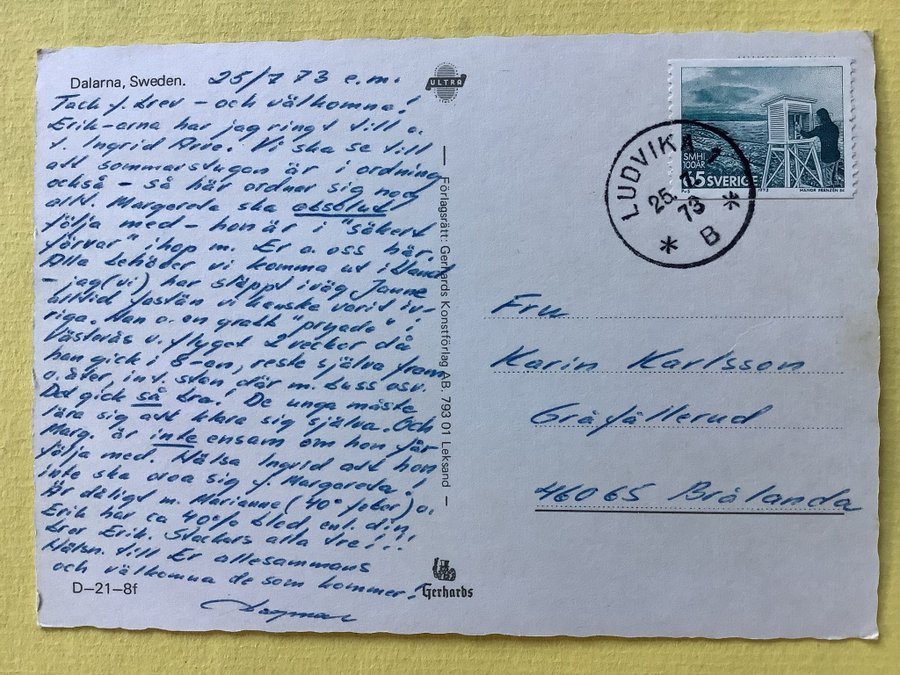 Dalarna, Sweden. 25/7 73 e.m.
Tack f. brev – och välkomna!
Erik-arna har jag ringt till o.
t. Ingrid Vi ska se till
att sommarstugan är i ordning
också – så här ordnar sig nog
allt. Margareda ska absolut
följa med – hon är i "säkert
förvar" ihop m. Er o. oss här.
Alla behöver vi komma ut i bland
– jag (vi) har släppt iväg Janne
alltid fastän vi kanske varit iv-
riga. Han o. en gratt "pryade" i
Västerås v. flyget 2 veckor då
han gick i 8:an, reste själva fram
o. åter, in t. stan där m. buss osv.
Det gick så bra! De unga måste
lära sig att klara sig själva. Och
Marg. är inte ensam om hon får
följa med. Hälsa Ingrid att hon
inte ska oroa sig f. Margareda!
Är dåligt m. Marianne (40° feber) o.
Erik har ca 40% bled enl. din
bror Erik. Stackars alla tre!!!
Hälsn. till Er allesammans
och välkomna de som kommer!
Dagmar
D–21–8f
ULTRA
– Förlagsrätt: Gerhards Konstförlag AB. 793 01 Leksand –
Gerhards
SMHI
100 ÅR
65 SVERIGE
1973
LUDVIKA 1
25. 7.
73
* B *
Fru
Karin Karlsson
Gråfällerud
46065 Brålanda